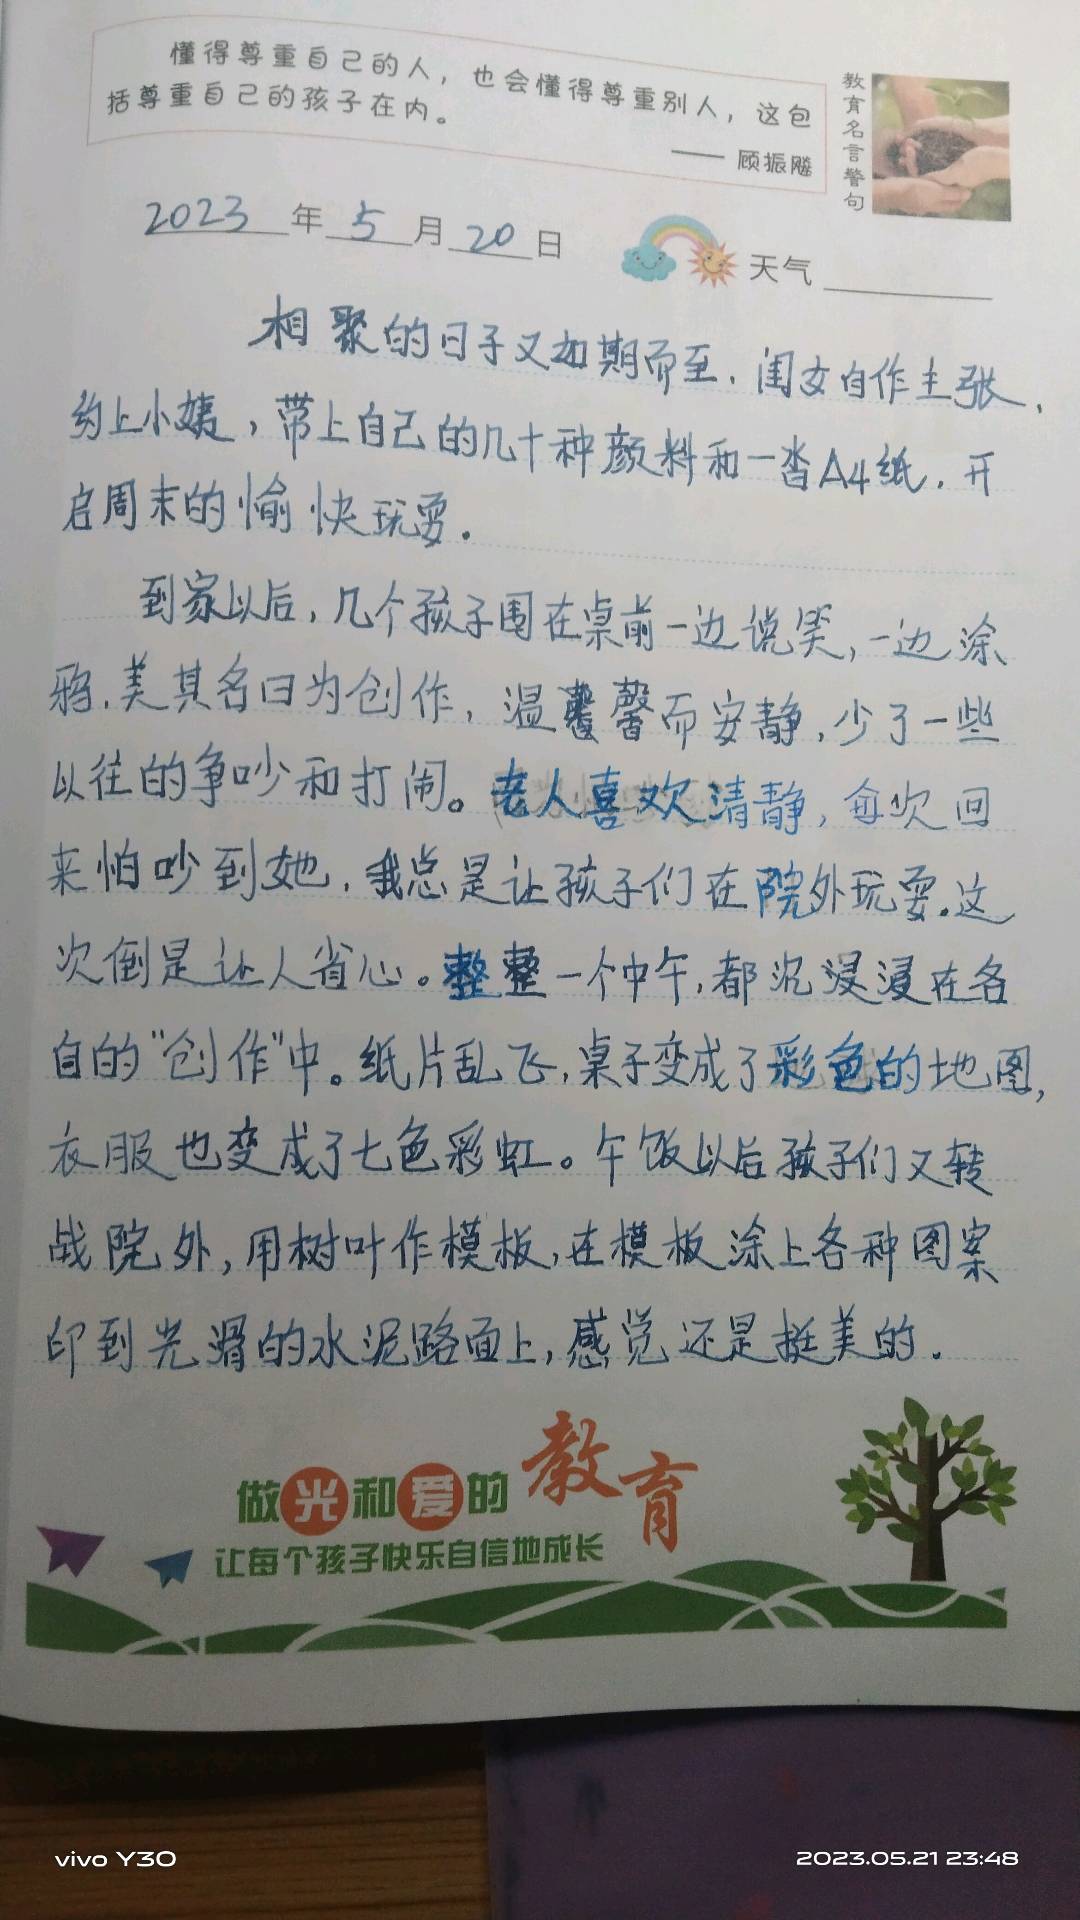 懂得尊重自己的人，也会懂得尊重别人，这包
括尊重自己的孩子在内。
—— 顾振飚
教育名言警句
2023年5月20日
天气
相聚的日子又如期而至，闺女自作主张，
约上小姨，带上自己的几十种颜料和一沓A4纸，开
启周末的愉快玩耍。
到家以后，几个孩子围在桌前一边说笑，一边涂
鸦，美其名曰为创作，温馨而安静，少了一些
以往的争吵和打闹。老人喜欢清静，每次回
来怕吵到她，我总是让孩子们在院外玩耍。这
次倒是让人省心。整整一个中午，都沉浸浸在各
自的“创作”中。纸片乱飞，桌子变成了彩色的地图，
衣服也变成了七色彩虹。午饭以后孩子们又转
战院外，用树叶作模板，在模板涂上各种图案
印到光滑的水泥路面上，感觉还是挺美的。
做光和爱的教育
让每个孩子快乐自信地成长
vivo Y30
2023.05.21 23:48